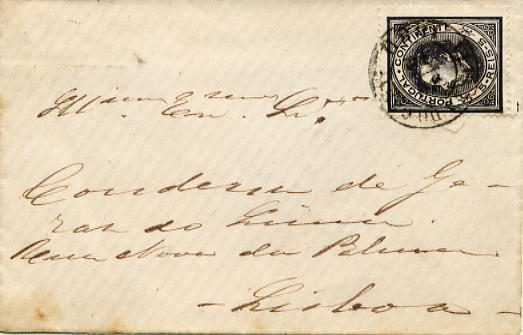 CONTINENTE
PORTUGAL
5 REIS
Illma e Exma Sra
Condessa de Ge-
raz do Lima
Rua Nova da Palma
- Lisboa -